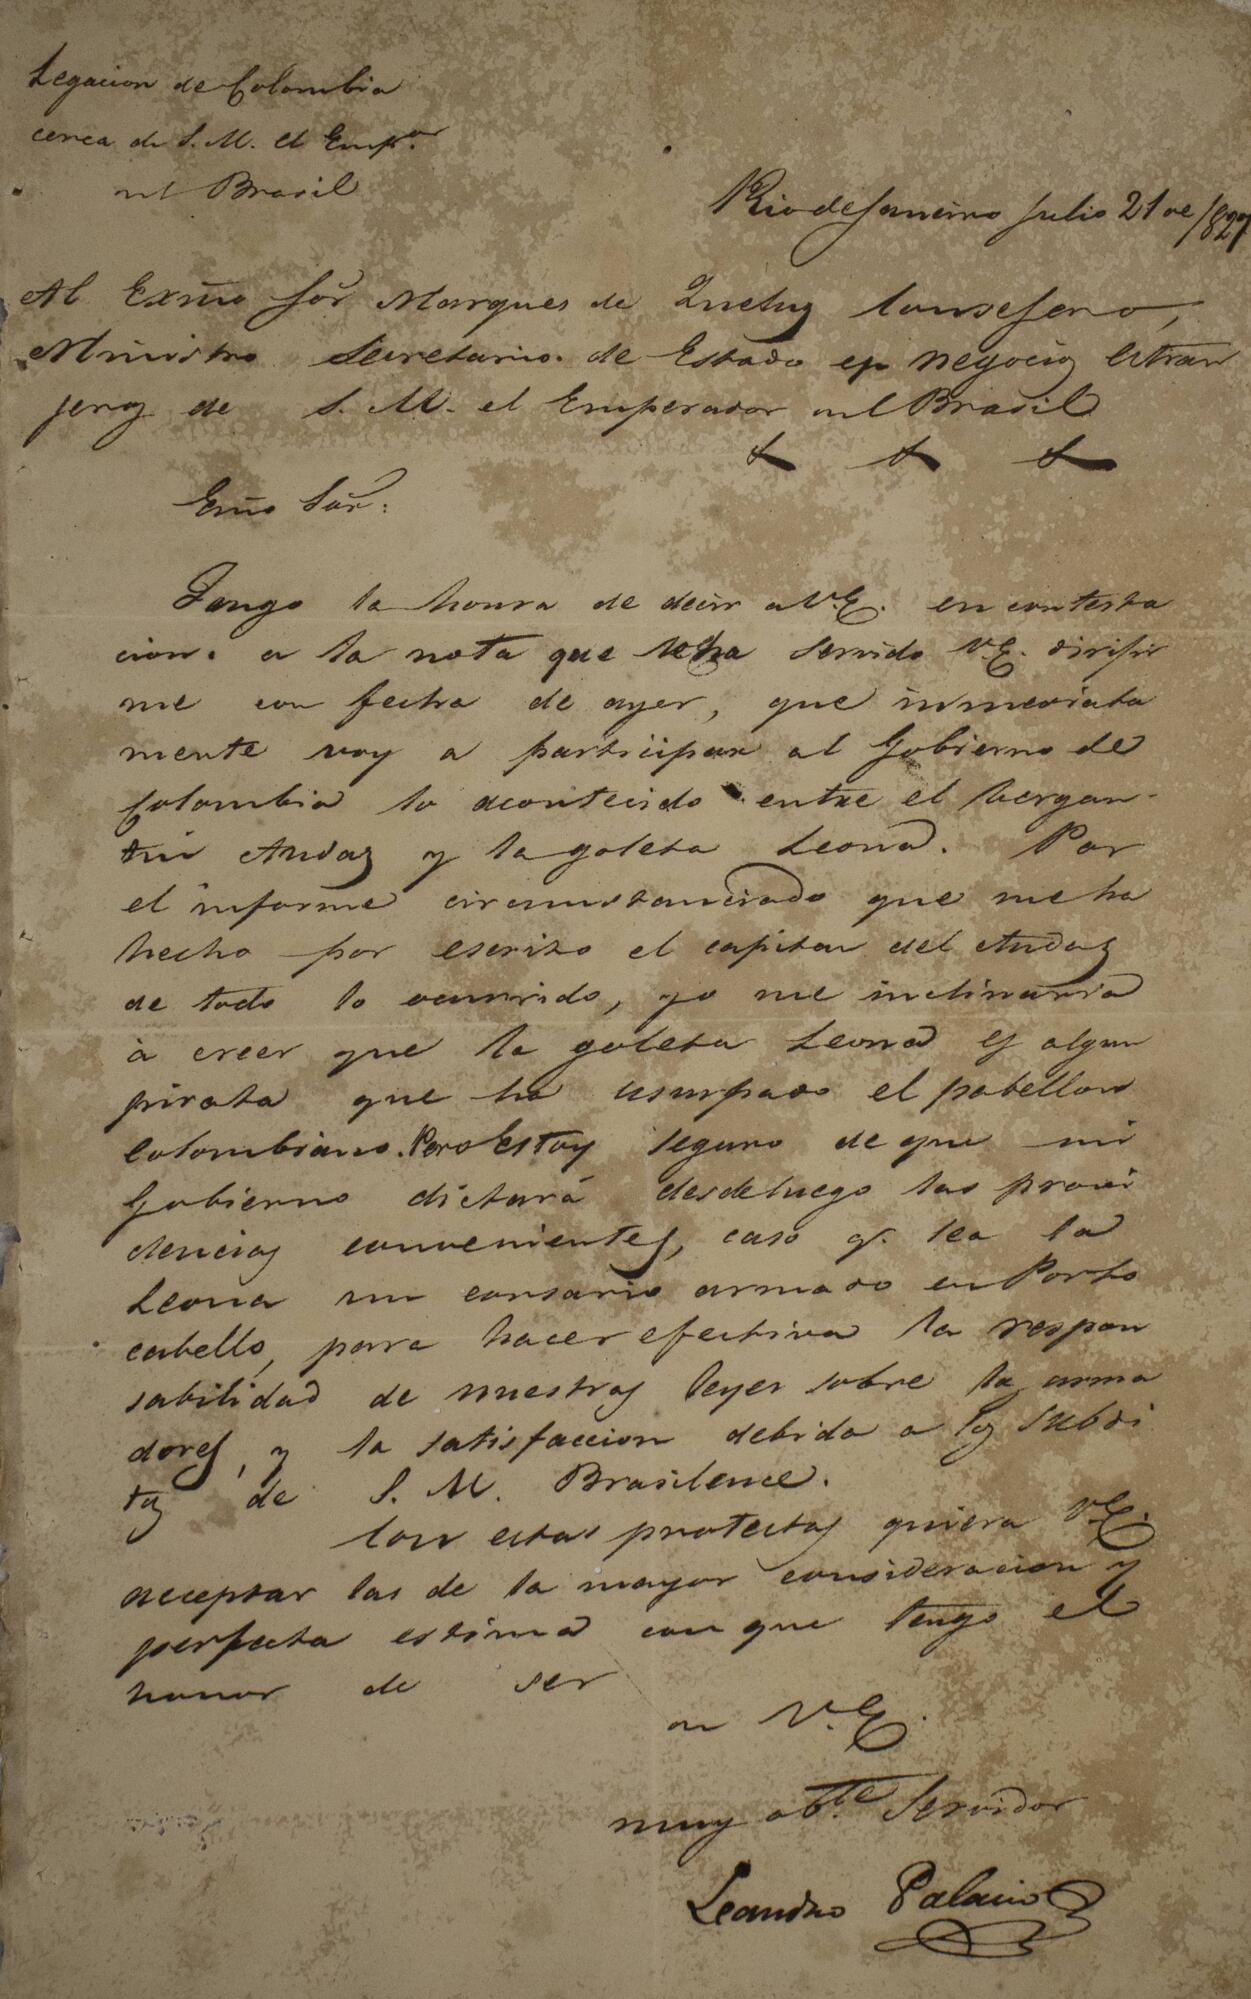 Legacion de Colombia
cerca de S. M. el Emp.or
del Brasil
Rio de Janeiro Julio 21 de 1827
Al Exmo Sor Marques de Queluz Consejero,
Ministro Secretario de Estado en negocios estran
jeros de S. M. el Emperador del Brasil
& & &
Exmo Sor.
Tengo la honra de decir a V.E. en contesta
cion. a la nota que se ha servido V.E. dirijir
me con fecha de ayer, que inmediata
mente voy a participar al Gobierno de
Colombia lo acontecido entre el bergan-
tin Audaz y la goleta Leona. Por
el informe circunstanciado que me ha
hecho por escrito el capitan del Audaz
de todo lo ocurrido, yo me inclinaria
à creer que la goleta Leona es algun
pirata que ha usurpado el pabellon
colombiano. Pero Estoy seguro de que mi
Gobierno dictará desde luego las provi
dencias convenientes, caso q.e sea la
Leona un corsario armado en Porto
cabello, para hacer efectiva la respon
sabilidad de nuestras leyes sobre los arma
dores, y la satisfaccion debida a los subdi
tos de S. M. Brasilense.
Con estas protestas quiera V.E.
acceptar las de la mayor consideracion y
perfecta estima con que tengo el
honor de ser
de V.E.
muy ob.te Servidor
Leandro Palacios